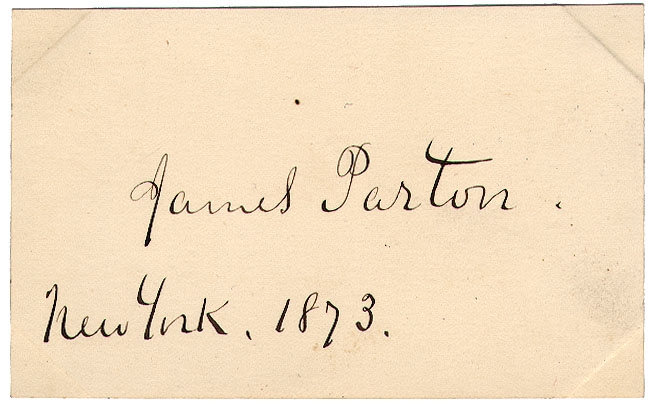 James Parton.
New York. 1873.